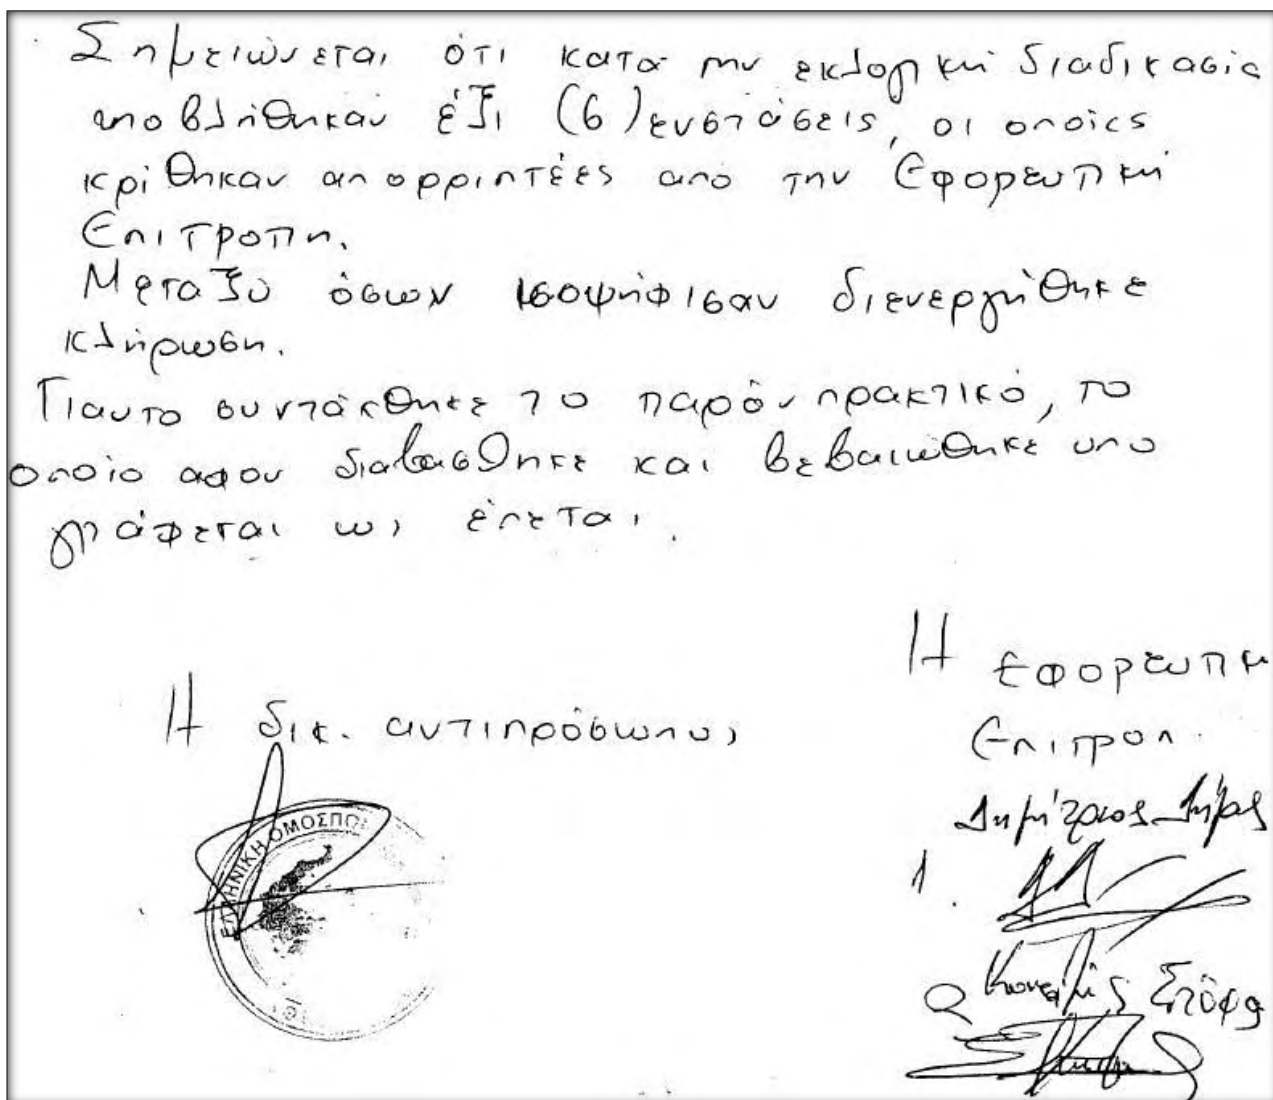 Σημειώνεται ότι κατα την εκλογική διαδικασία
υποβλήθηκαν έξι (6) ενστάσεις, οι οποίες
κρίθηκαν απορριπτέες από την Εφορευτική
Επιτροπη.
Μεταξύ όσων ισοψήφισαν διενεργήθηκε
κλήρωση.
Γιαυτο συντάχθηκε το παρόν πρακτικό, το
οποίο αφου διαβασθηκε και βεβαιώθηκε υπο
γράφεται ως έπεται.
Η Εφορευτικ
Η δικ. αντιπρόσωπος
Επιτροπ.
Δημήτριος
ΕΛΛΗΝΙΚΗ ΟΜΟΣΠΟ
1.
2